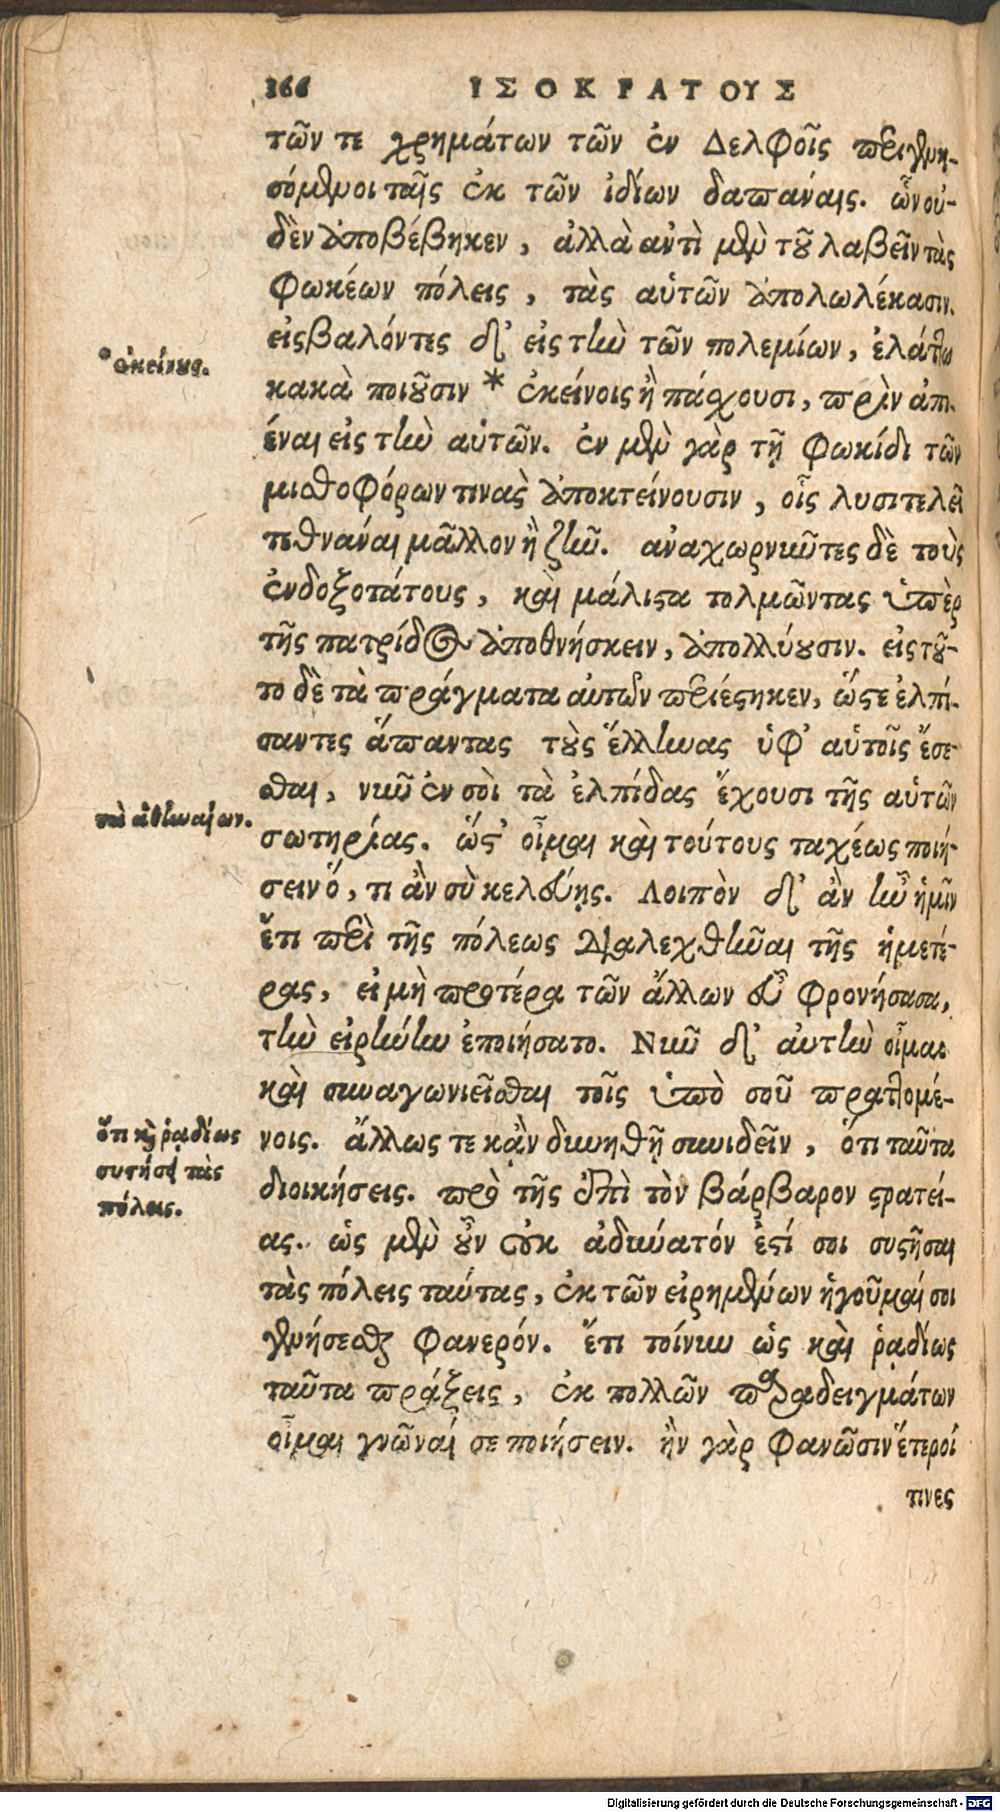 166 ΙΣΟΚΡΑΤΟΥΣ
τῶν τε χρημάτων τῶν ἐν Δελφοῖς περιγενη-
σόμενοι ταῖς ἐκ τῶν ἰδίων δαπάναις. ὧν οὐ-
δὲν ἀποβέβηκεν, ἀλλὰ ἀντὶ μὲν τοῦ λαβεῖν τὰς
Φωκέων πόλεις, τὰς αὑτῶν ἀπολωλέκασιν.
εἰσβαλόντες δ' εἰς τὴν τῶν πολεμίων, ἐλάττω
κακὰ ποιοῦσιν * ἐκείνοις ἢ πάσχουσι, πρὶν ἀπι-
έναι εἰς τὴν αὑτῶν. ἐν μὲν γὰρ τῇ Φωκίδι τῶν
μισθοφόρων τινὰς ἀποκτείνουσιν, οἷς λυσιτελεῖ
τεθνάναι μᾶλλον ἢ ζῆν. ἀναχωροῦντες δὲ τοὺς
ἐνδοξοτάτους, καὶ μάλιστα τολμῶντας ὑπὲρ
τῆς πατρίδος ἀποθνήσκειν, ἀπολλύουσιν. εἰς τοῦ-
το δὲ τὰ πράγματα αὐτῶν περιέστηκεν, ὥστε ἐλπί-
σαντες ἅπαντας τοὺς ἕλληνας ὑφ' αὑτοῖς ἔσε-
σθαι, νῦν ἐν σοὶ τὰ ἐλπίδας ἔχουσι τῆς αὑτῶν
σωτηρίας. ὥστ' οἶμαι καὶ τούτους ταχέως ποιή-
σειν ὅ, τι ἂν σὺ κελεύῃς. Λοιπὸν δ' ἂν ἦν ἡμῖν
ἔτι περὶ τῆς πόλεως διαλεχθῆναι τῆς ἡμετέ-
ρας, εἰ μὴ προτέρα τῶν ἄλλων εὖ φρονήσασα,
τὴν εἰρήνην ἐποιήσατο. Νῦν δ' αὐτὴν οἶμαι
καὶ συναγωνιεῖσθαι τοῖς ὑπὸ σοῦ πραττομέ-
νοις. ἄλλως τε κἂν δυνηθῇ συνιδεῖν, ὅτι ταῦτα
διοικήσεις. πρὸ τῆς ἐπὶ τὸν βάρβαρον στρατεί-
ας. ὡς μὲν οὖν οὐκ ἀδύνατόν ἐστί σοι συστῆσαι
τὰς πόλεις ταύτας, ἐκ τῶν εἰρημένων ἡγοῦμαί σοι
γενήσεσθαι φανερόν. ἔτι τοίνυν ὡς καὶ ῥᾳδίως
ταῦτα πράξεις, ἐκ πολλῶν παραδειγμάτων
οἶμαι γνῶναί σε ποιήσειν. ἢν γὰρ φανῶσιν ἕτεροί
τινες
* ἐκείνους.
ἀθηναίων.
ὅτι καὶ ῥᾳδίως
συστήσει τὰς
πόλεις.
Digitalisierung gefördert durch die Deutsche Forschungsgemeinschaft - DFG